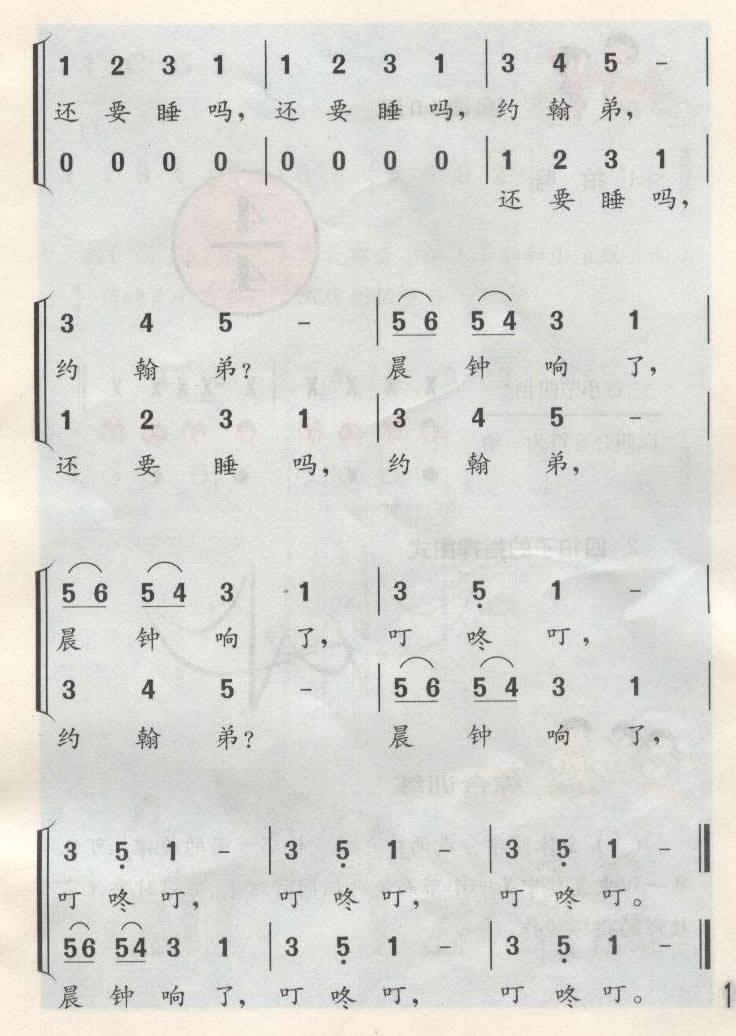 1 2 3 1 | 1 2 3 1 | 3 4 5 – |
还 要 睡 吗, 还 要 睡 吗, 约 翰 弟,
0 0 0 0 | 0 0 0 0 | 1 2 3 1
还 要 睡 吗,
3 4 5 – | 5 6 5 4 3 1 |
约 翰 弟? 晨 钟 响 了,
1 2 3 1 | 3 4 5 –
还 要 睡 吗, 约 翰 弟,
5 6 5 4 3 1 | 3 5̣ 1 – |
晨 钟 响 了, 叮 咚 叮,
3 4 5 – | 5 6 5 4 3 1
约 翰 弟? 晨 钟 响 了,
3 5̣ 1 – | 3 5̣ 1 – | 3 5̣ 1 – ‖
叮 咚 叮, 叮 咚 叮, 叮 咚 叮。
5 6 5 4 3 1 | 3 5̣ 1 – | 3 5̣ 1 – ‖
晨 钟 响 了, 叮 咚 叮, 叮 咚 叮。
1